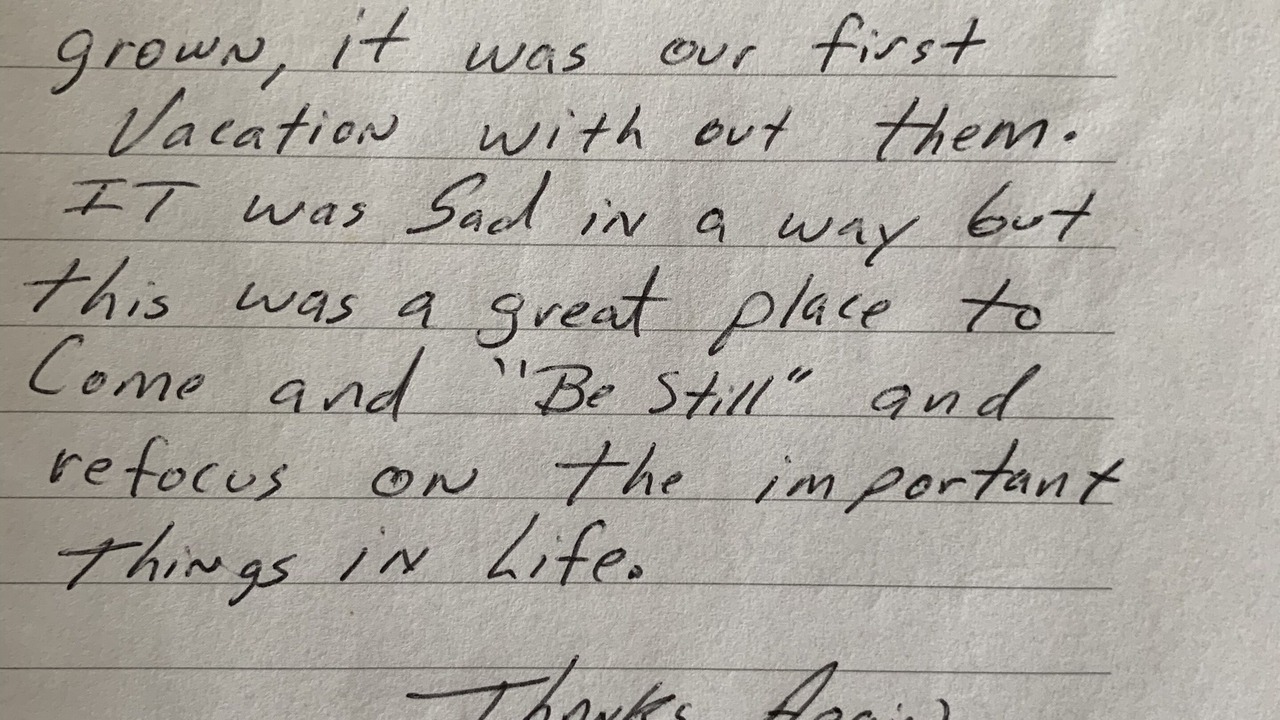 grown, it was our first
Vacation with out them.
IT was Sad in a way but
this was a great place to
Come and "Be Still" and
refocus on the important
things in Life.
Thanks Again